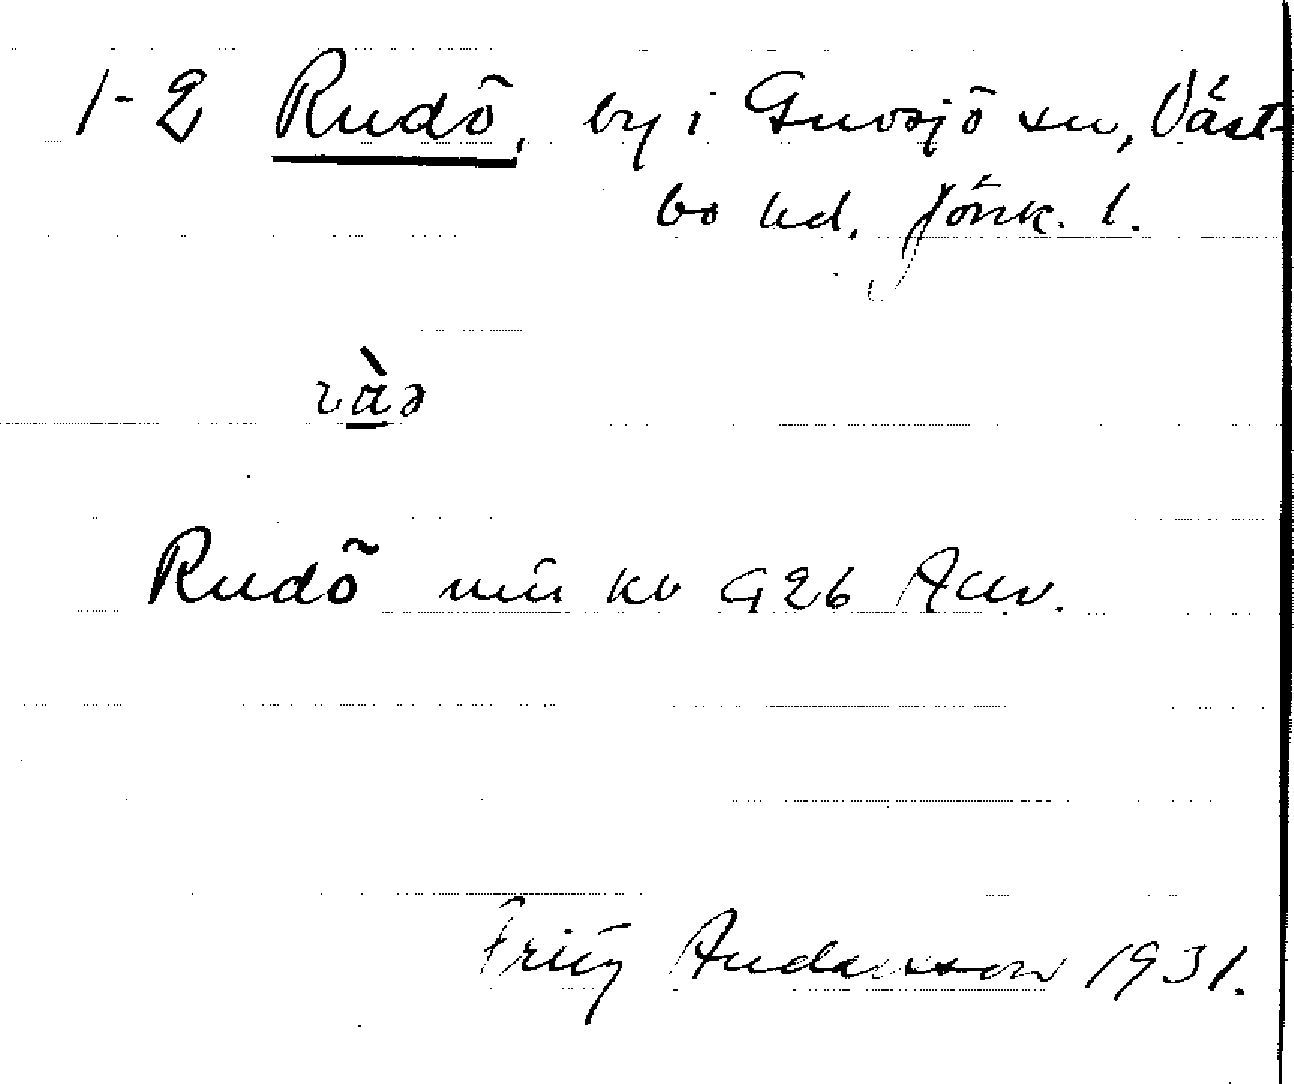 1-2 Rudö, by i Gnosjö sn, Väst-
bo hd. Jönk. l.
Rudö mtl kb 926 Allm.
Fritz Andersson 1931.